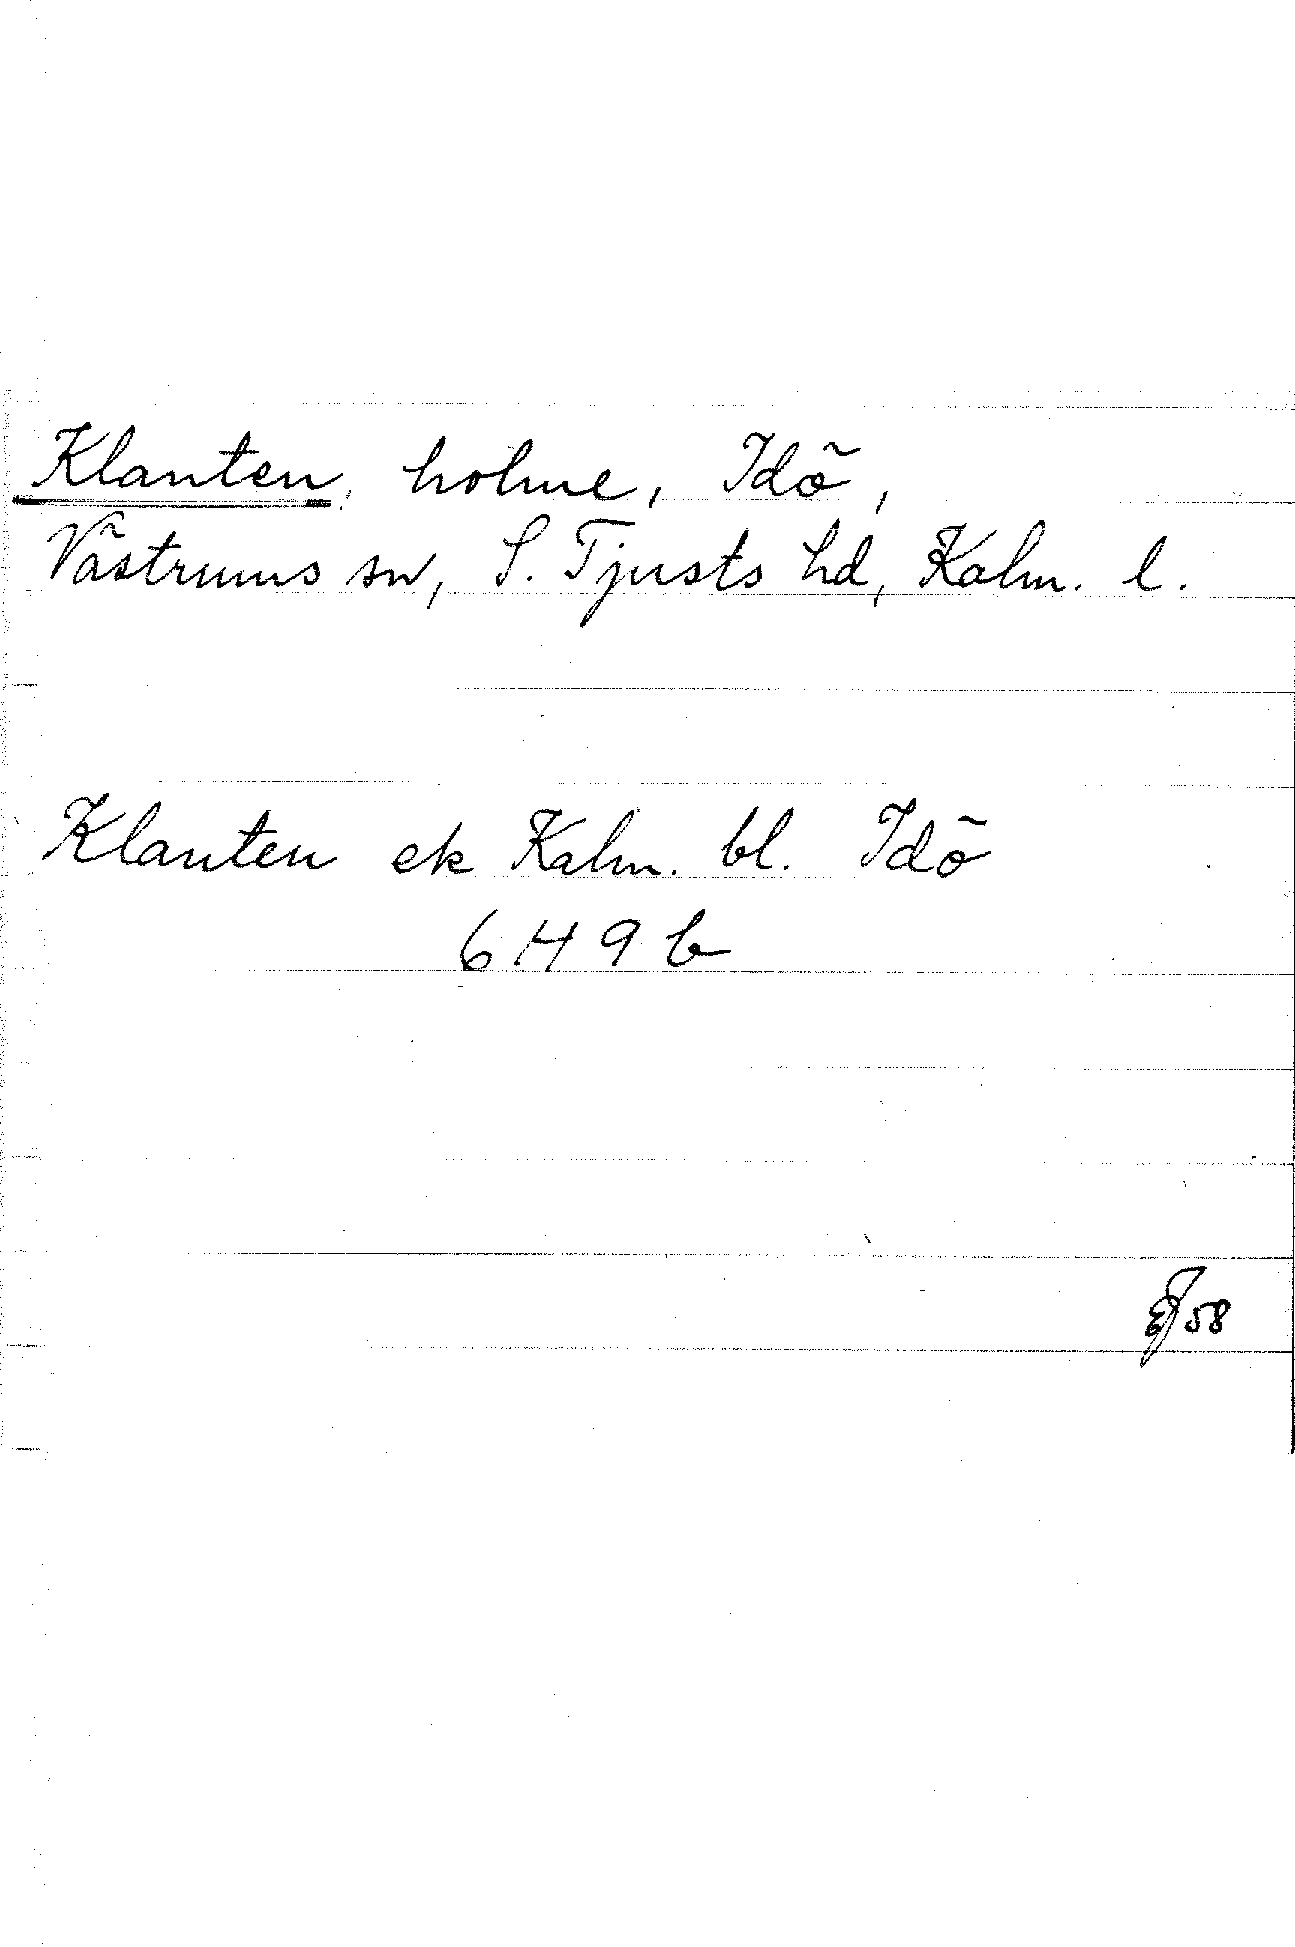 Klanten, holme, Idö,
Västrums sn, S. Tjusts hd, Kalm. l.
Klanten ek Kalm. bl. Idö
6 H 9 b
58